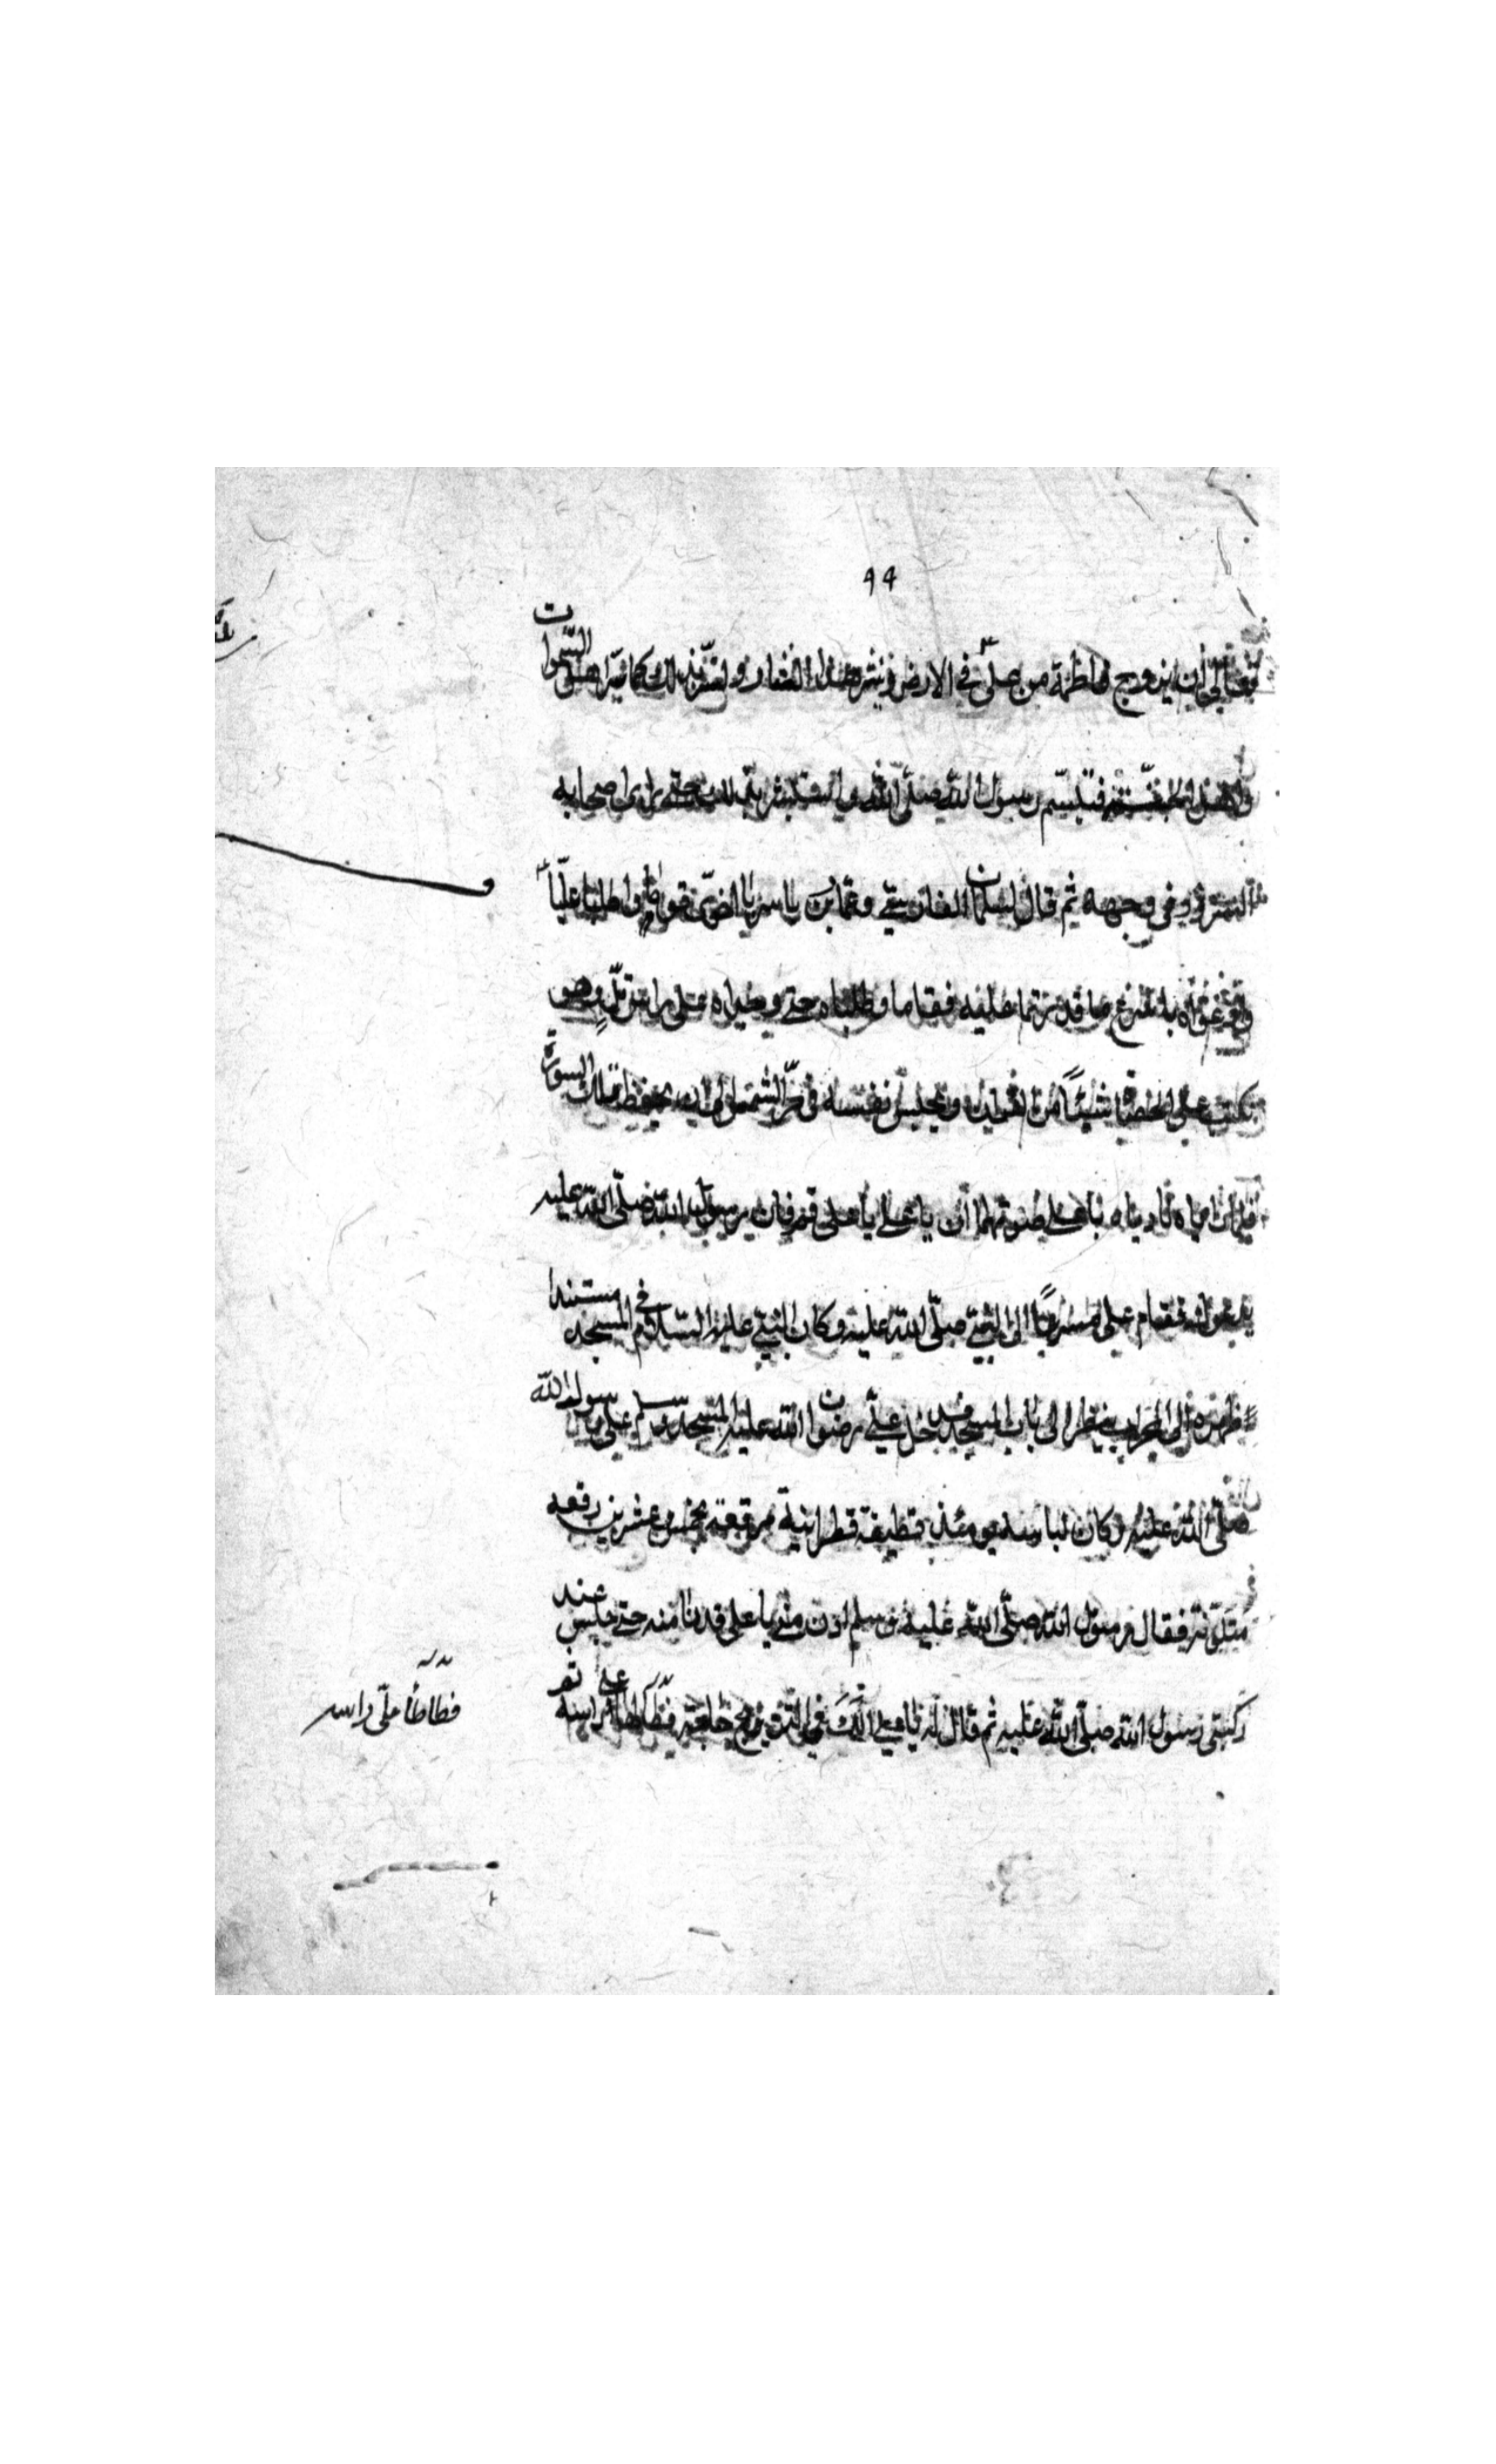 ٩٤
تعالى أن يزوج فاطمة من علي في الارض وينشر هذا النثار و كما نثر اهل السموات
فتبسم رسول الله صلى الله واستبشر بذلك حتى راى اصحابه
السرور في وجهه ثم قال لسلمان الفارسي وعمار بن ياسر يا اخوي قوما واطلبا عليا
فقاما وطلباه حتى وجداه على راس تل وهو
يكتب على الحصا شيئا من القران ويحبس نفسه في حر الشمس الى ان يحفظ تلك السورة
فلما راياه نادياه باعلى صوتهما ان يا علي يا علي قم فان رسول الله صلى الله عليه
يدعوك فقام علي مسرعا الى النبي صلى الله عليه وكان النبي عليه السلام في المسجد مستندا
ظهره الى المحراب ينظر الى باب المسجد فدخل علي رضوان الله عليه المسجد وسلم على رسول الله
صلى الله عليه وكان لباسه يومئذ قطيفة قطرانية مرقعة بخمس وعشرين رقعة
فقال رسول الله صلى الله عليه وسلم ادن مني يا علي فدنا منه حتى جلس عند
ركبتي رسول الله صلى الله عليه ثم قال له يا علي الك في التزويج حاجة فطأطأ علي راسه
فطأطأ علي راسه